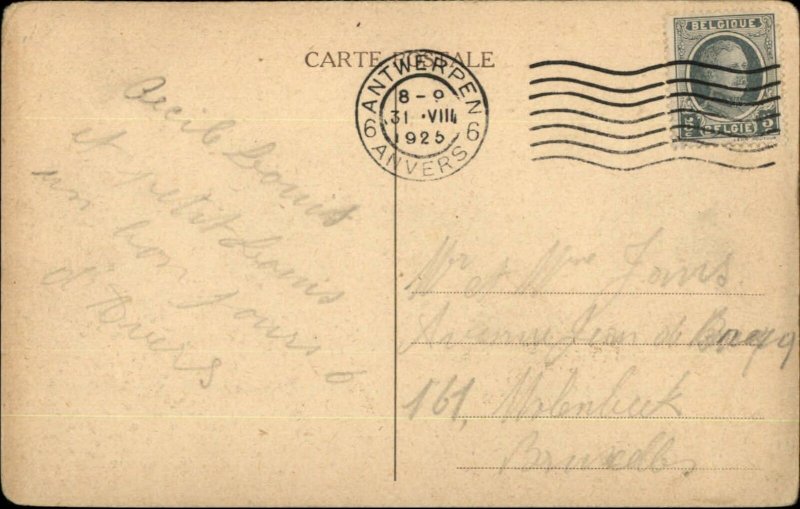 CARTE POSTALE
ANTWERPEN
8-9
31 VIII
1925
6 6
ANVERS
BELGIQUE
BELGIË
5
Louis
et petit Louis
un bon jour
d'Anvers
Mr et Mme
Avenue Jean
161, Molenbeek
Bruxelles